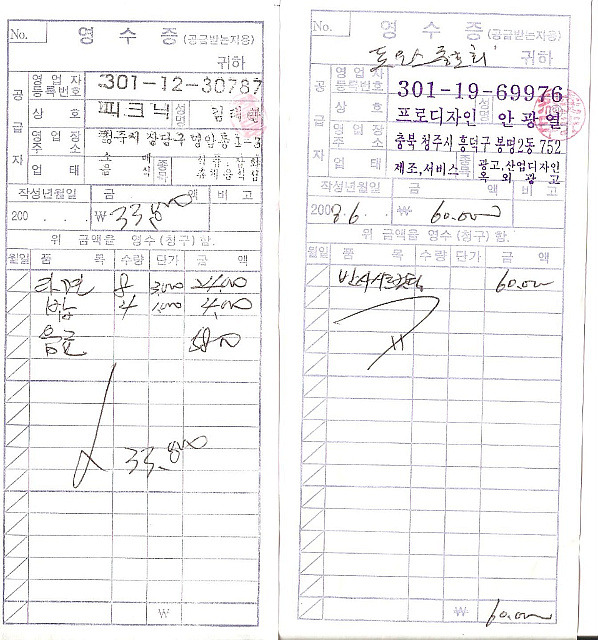 No.
영 수 증 (공급받는자용)
귀하
공급자
영업자
등록번호
301-12-30787
상 호
피.크닉
성명
영업장
주 소
청주시 상당구 명암동 1-3
업 태
소 매
음 식
종목
작성년월일
금 액
비 고
200 . . .
₩ 33,800
위 금액을 영수 (청구) 함.
월일 품 목 수량 단가 금 액
라면 8 3,000 24,000
밥 4 1,000 4,000
음료 5800
33,800
₩
No.
영 수 증 (공급받는자용)
귀하
공급자
영업자
등록번호
301-19-69976
상 호
프로디자인
성명
안 광 열
영업장
주 소
충북 청주시 흥덕구 봉명2동 752
업 태
제조,서비스
종목
광고,산업디자인
옥 외 광 고
작성년월일
금 액
비 고
₩ 60,000
위 금액을 영수 (청구) 함.
월일 품 목 수량 단가 금 액
60,000
₩ 60,000